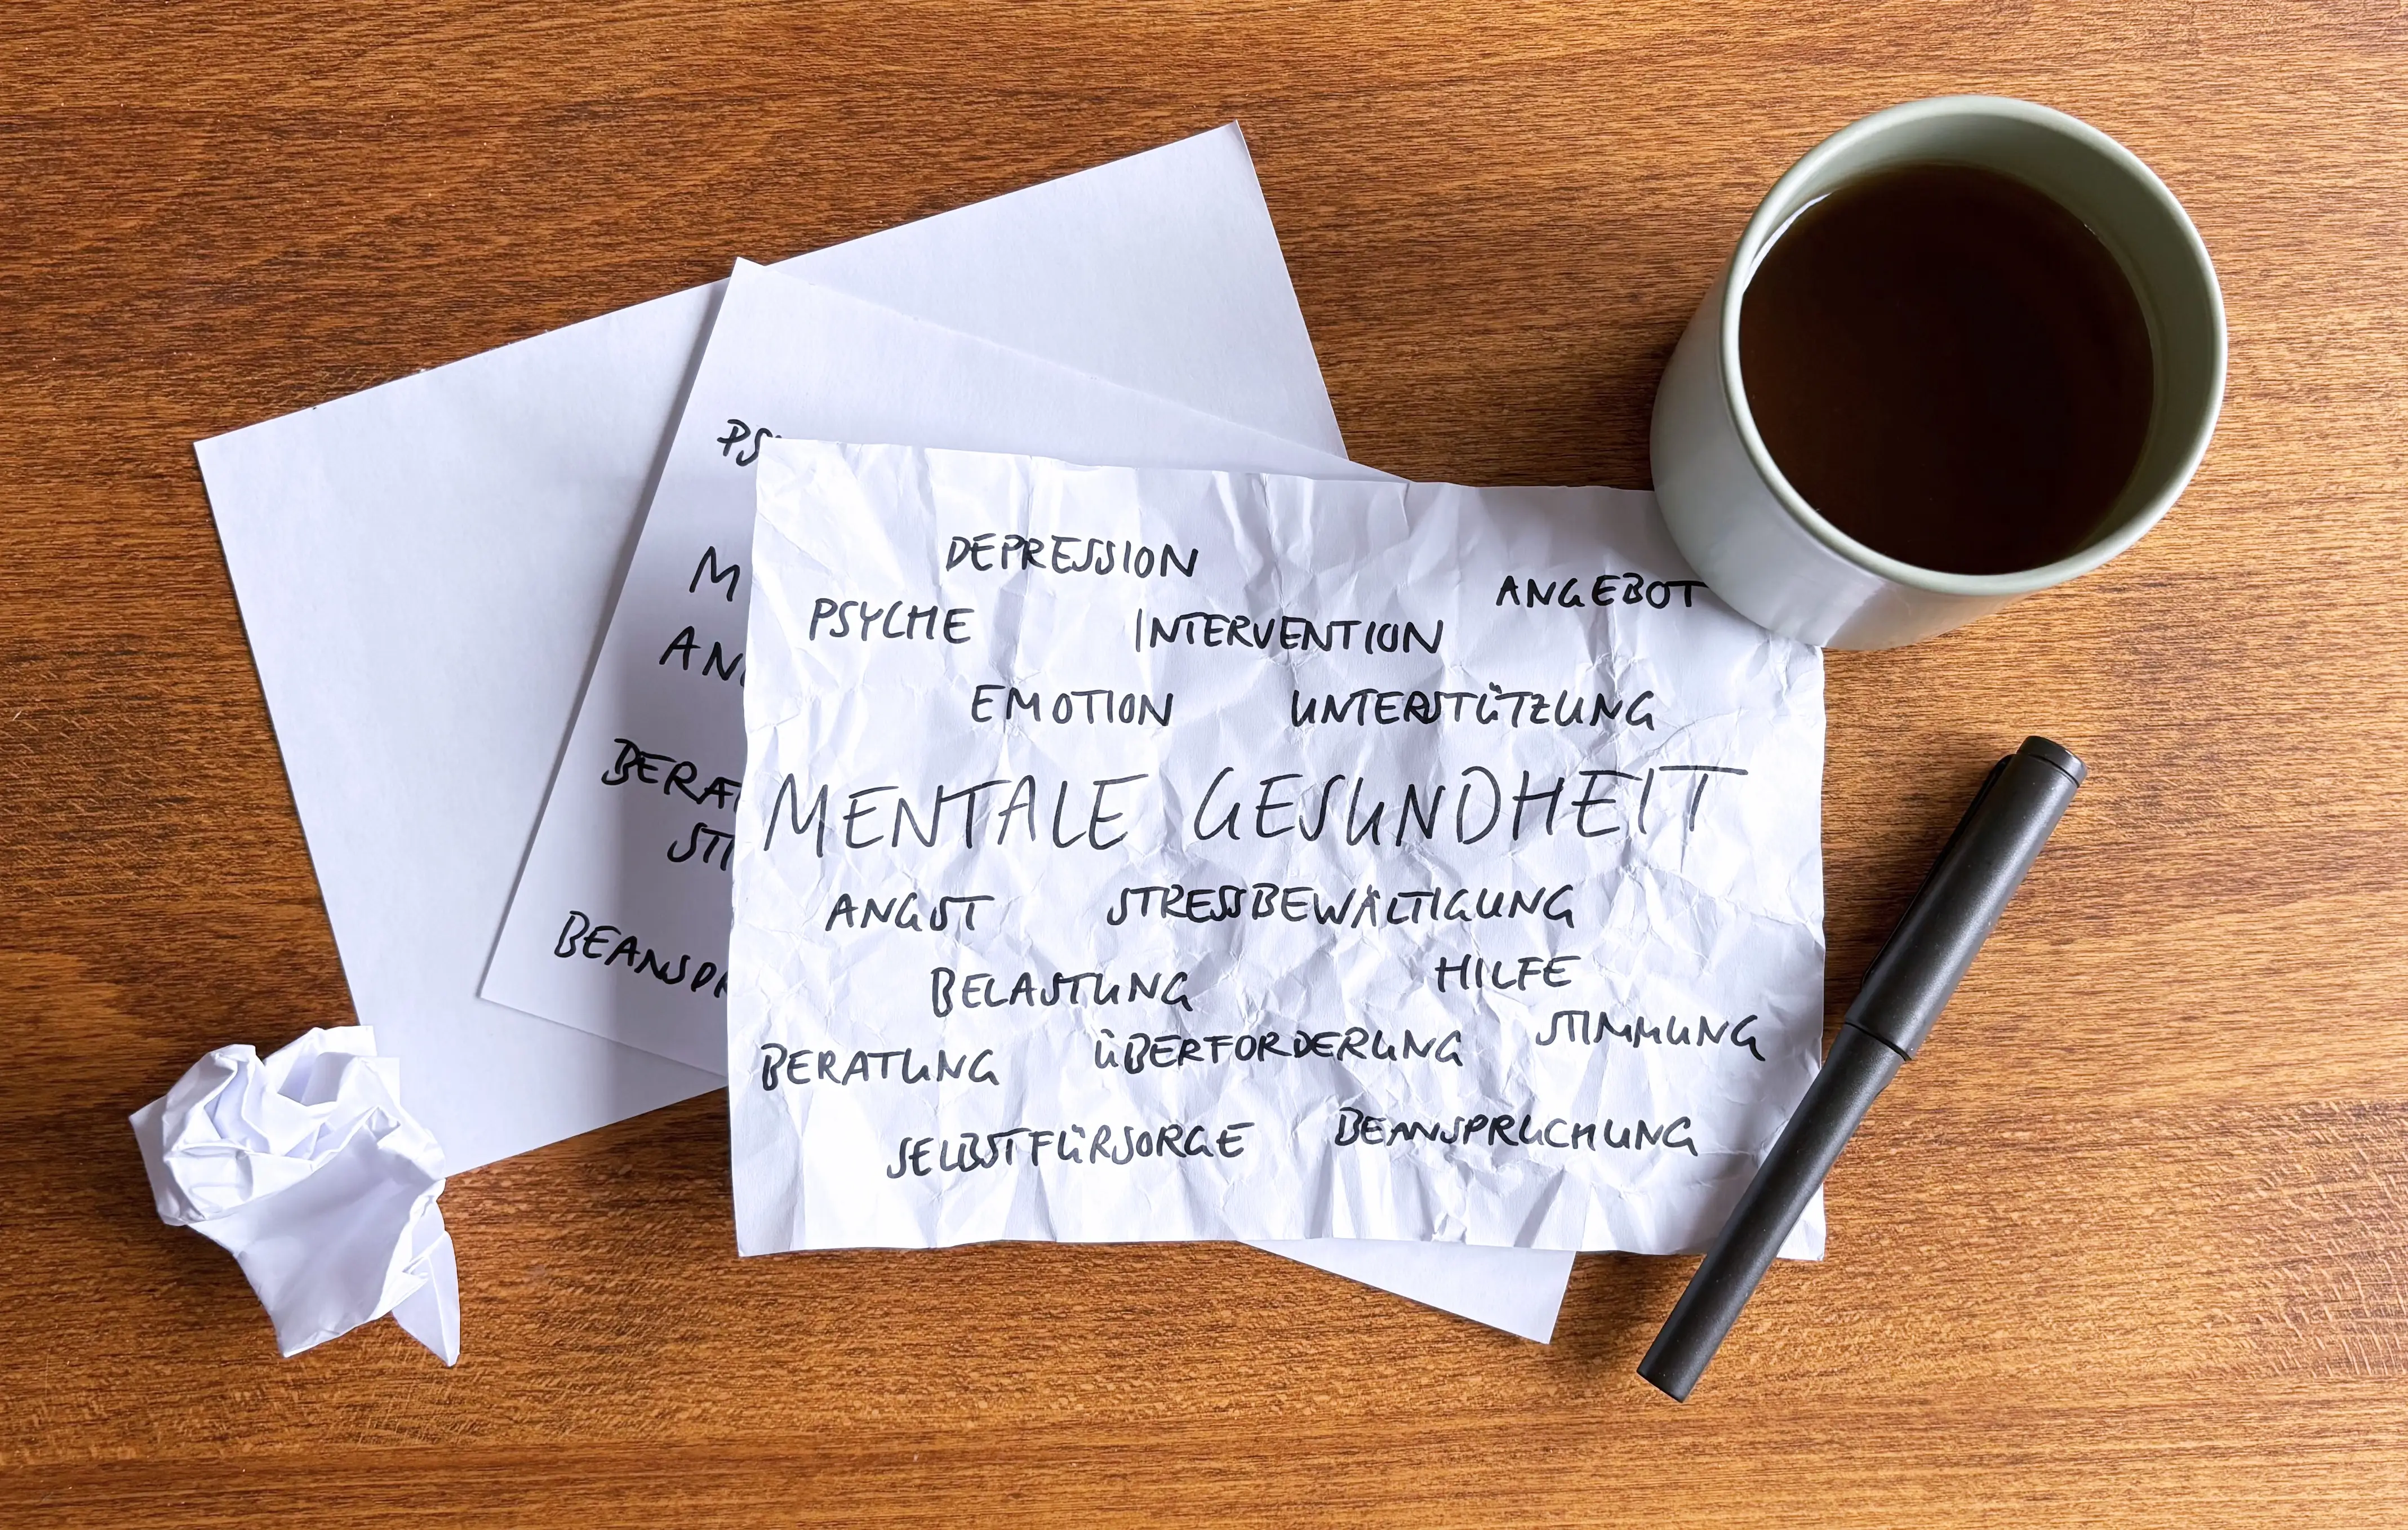 DEPRESSION
ANGEBOT
PSYCHE INTERVENTION
EMOTION UNTERSTÜTZUNG
MENTALE GESUNDHEIT
ANGST STRESSBEWÄLTIGUNG
BELASTUNG HILFE
BERATUNG ÜBERFORDERUNG STIMMUNG
SELBSTFÜRSORGE BEANSPRUCHUNG